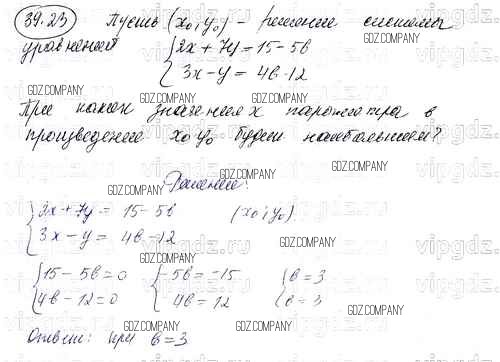 39.23 Пусть (x₀; y₀) – решение системы
уравнений { 2x + 7y = 15 – 5b
3x – y = 4b – 12
При каком значениях параметра в
произведение x₀y₀ будет наибольшим?
Решение:
{ 2x + 7y = 15 – 5b (x₀; y₀)
3x – y = 4b – 12
{ 15 – 5b = 0 { –5b = –15 { b = 3
4b – 12 = 0 4b = 12 b = 3
Ответ: при b = 3
GDZ.COMPANY
vipgdz.ru